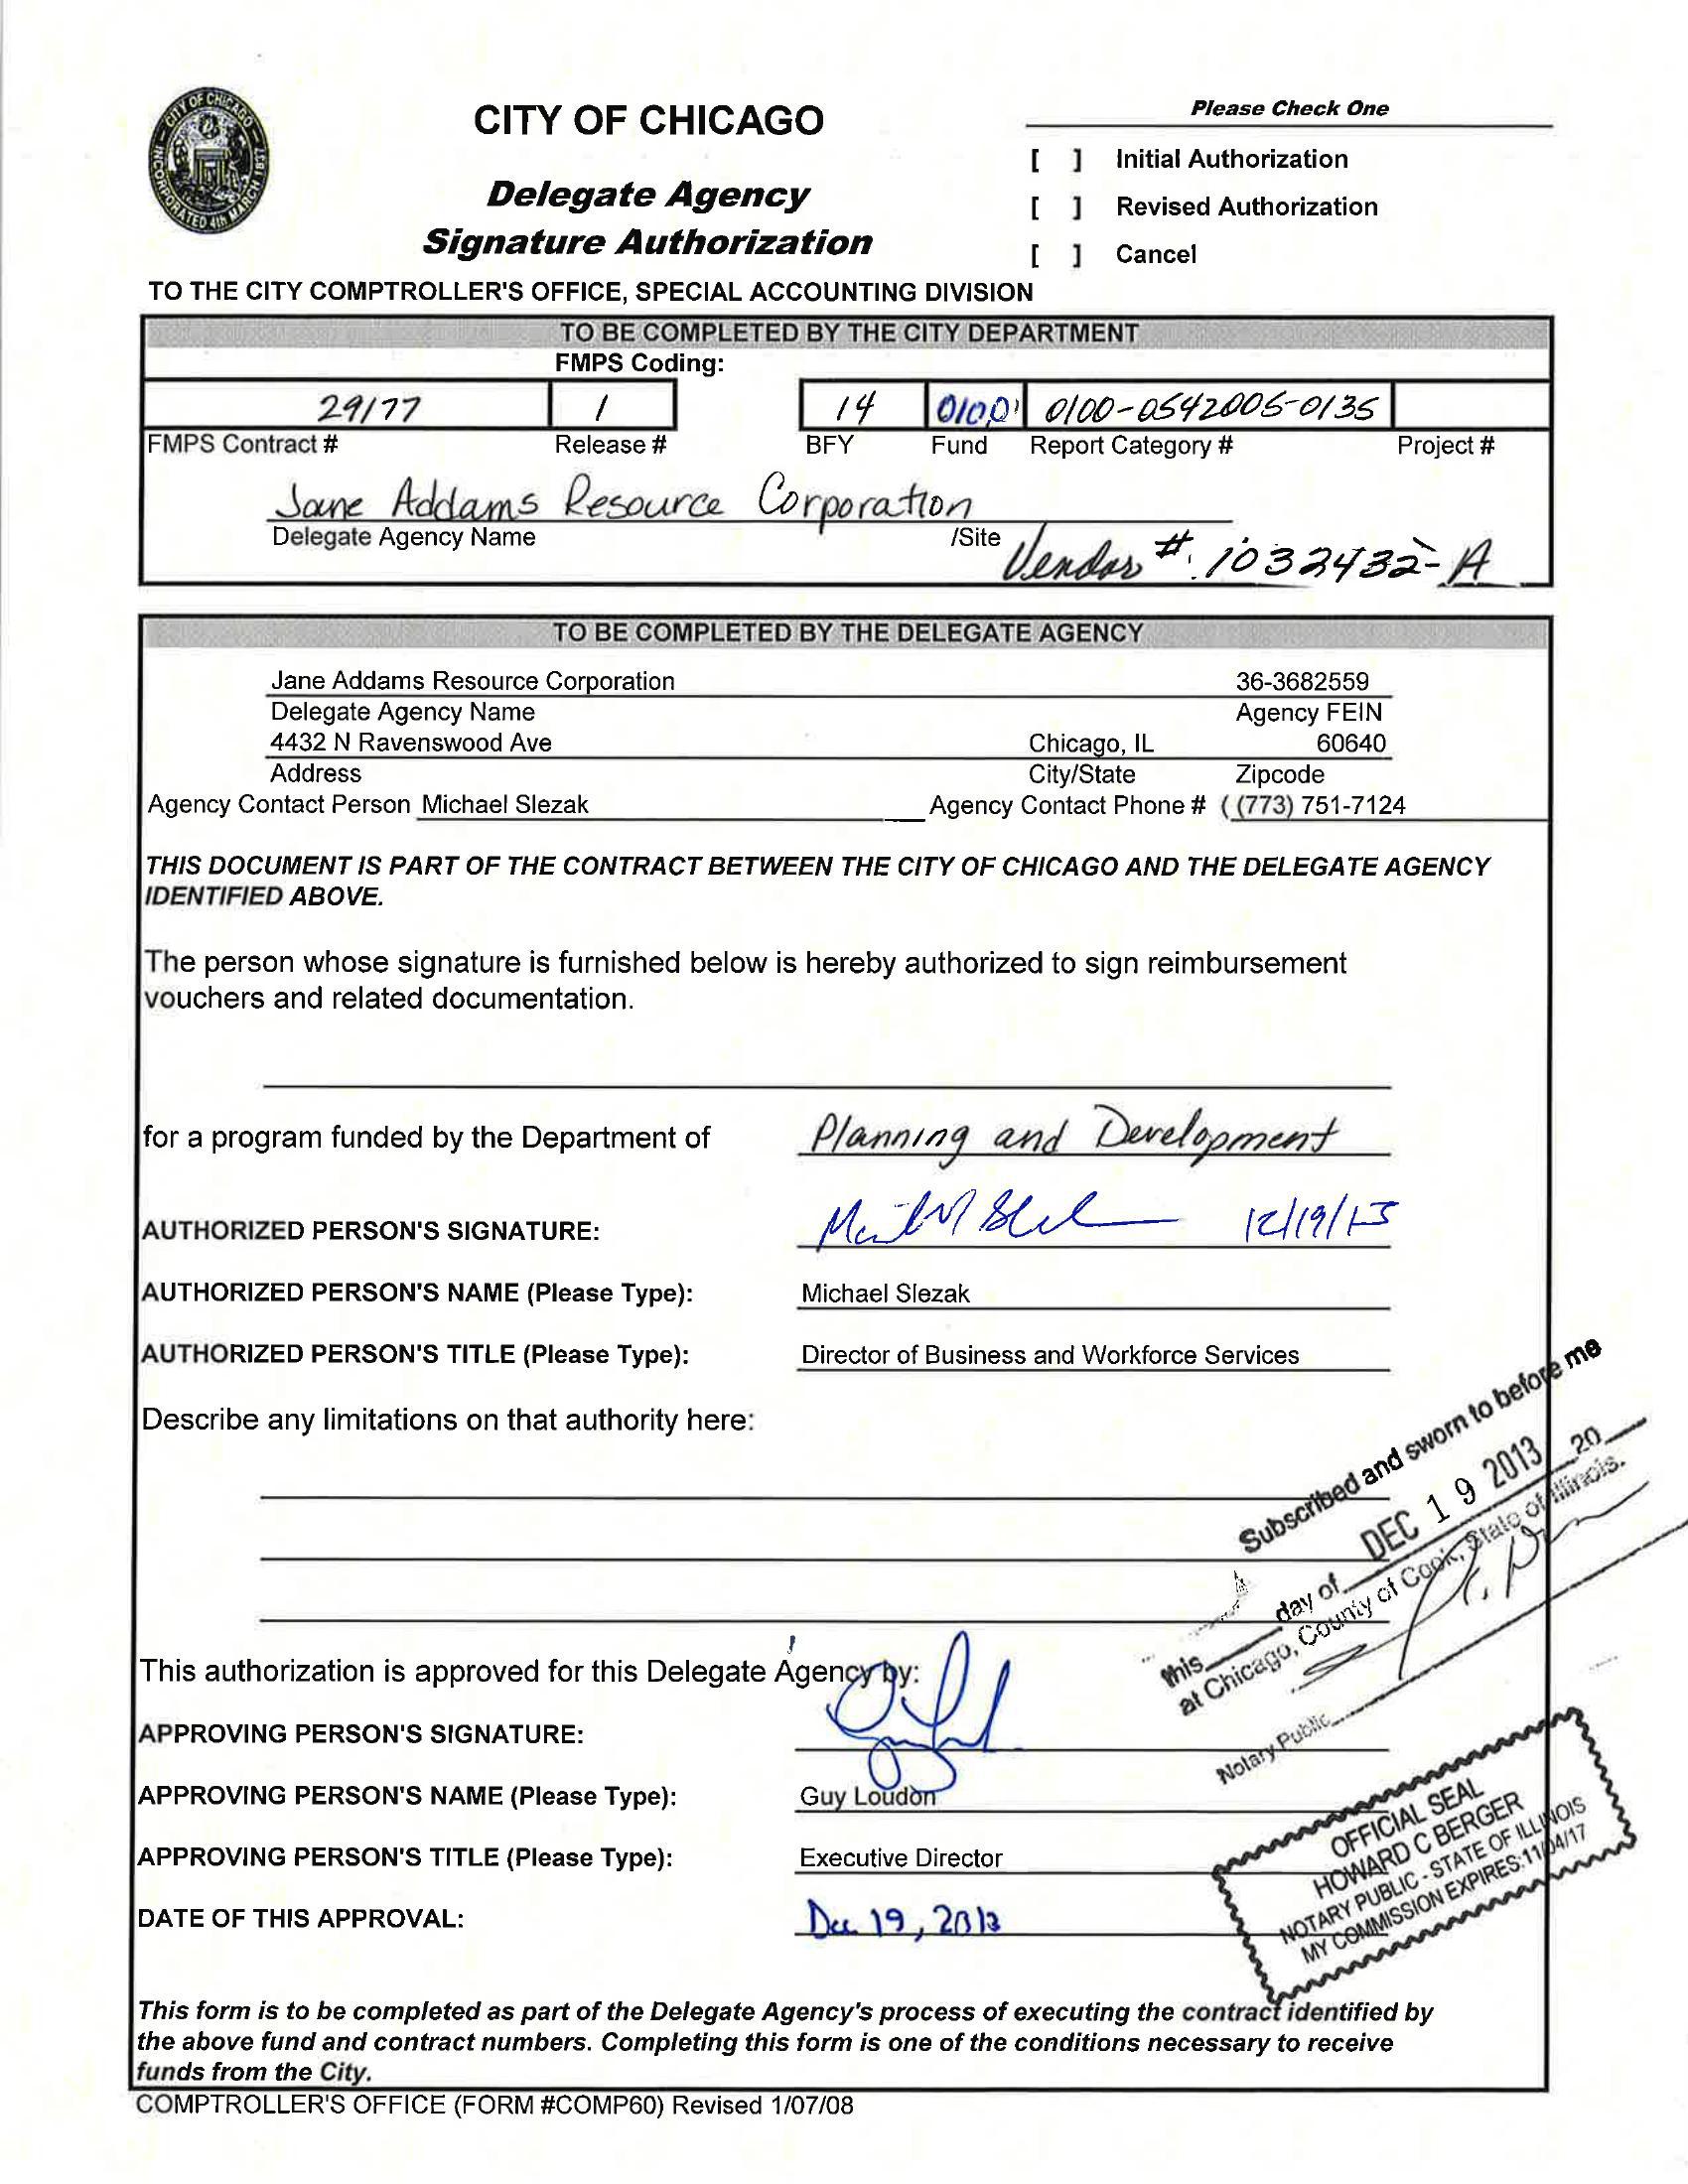 CITY OF CHICAGO
INCORPORATED 4th MARCH 1837
CITY OF CHICAGO
Delegate Agency
Signature Authorization
Please Check One
[ ] Initial Authorization
[ ] Revised Authorization
[ ] Cancel
TO THE CITY COMPTROLLER'S OFFICE, SPECIAL ACCOUNTING DIVISION
TO BE COMPLETED BY THE CITY DEPARTMENT
FMPS Coding:
29177 1 14 0100 0100-0542005-0135
FMPS Contract # Release # BFY Fund Report Category # Project #
Jane Addams Resource Corporation
Delegate Agency Name /Site
Vendor #: 1032432-A
TO BE COMPLETED BY THE DELEGATE AGENCY
Jane Addams Resource Corporation 36-3682559
Delegate Agency Name Agency FEIN
4432 N Ravenswood Ave Chicago, IL 60640
Address City/State Zipcode
Agency Contact Person Michael Slezak Agency Contact Phone # ( (773) 751-7124
THIS DOCUMENT IS PART OF THE CONTRACT BETWEEN THE CITY OF CHICAGO AND THE DELEGATE AGENCY
IDENTIFIED ABOVE.
The person whose signature is furnished below is hereby authorized to sign reimbursement
vouchers and related documentation.
for a program funded by the Department of Planning and Development
AUTHORIZED PERSON'S SIGNATURE: 12/19/13
AUTHORIZED PERSON'S NAME (Please Type): Michael Slezak
AUTHORIZED PERSON'S TITLE (Please Type): Director of Business and Workforce Services
Describe any limitations on that authority here:
Subscribed and sworn to before me
this day of DEC 19 2013 20
at Chicago, County of Cook, State of Illinois.
Notary Public
This authorization is approved for this Delegate Agency by:
APPROVING PERSON'S SIGNATURE:
APPROVING PERSON'S NAME (Please Type): Guy Loudon
APPROVING PERSON'S TITLE (Please Type): Executive Director
DATE OF THIS APPROVAL: Dec 19, 2013
OFFICIAL SEAL
HOWARD C BERGER
NOTARY PUBLIC - STATE OF ILLINOIS
MY COMMISSION EXPIRES:11/04/17
This form is to be completed as part of the Delegate Agency's process of executing the contract identified by
the above fund and contract numbers. Completing this form is one of the conditions necessary to receive
funds from the City.
COMPTROLLER'S OFFICE (FORM #COMP60) Revised 1/07/08